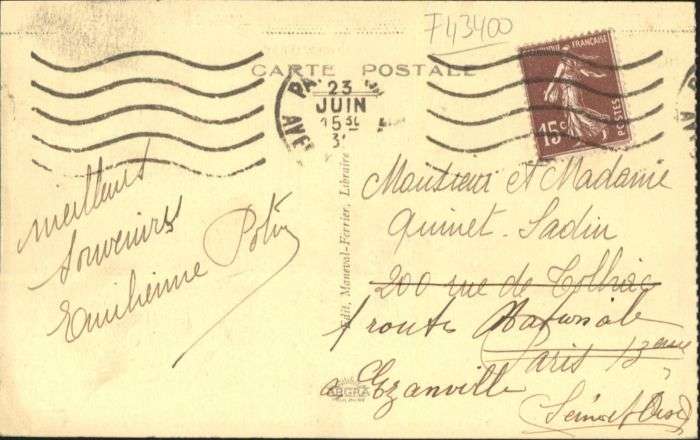 F43400
CARTE POSTALE
RÉPUBLIQUE FRANÇAISE
POSTES
15c
23
JUIN
15 30
Meilleurs
souvenirs
Emilienne Potin
Edit. Maneval-Ferrier, Libraire
Monsieur et Madame
Quinet-Sadin
200 rue de Tolbiac
1 route Nationale
Paris 13eme
a Ezanville
(Seine et Oise)